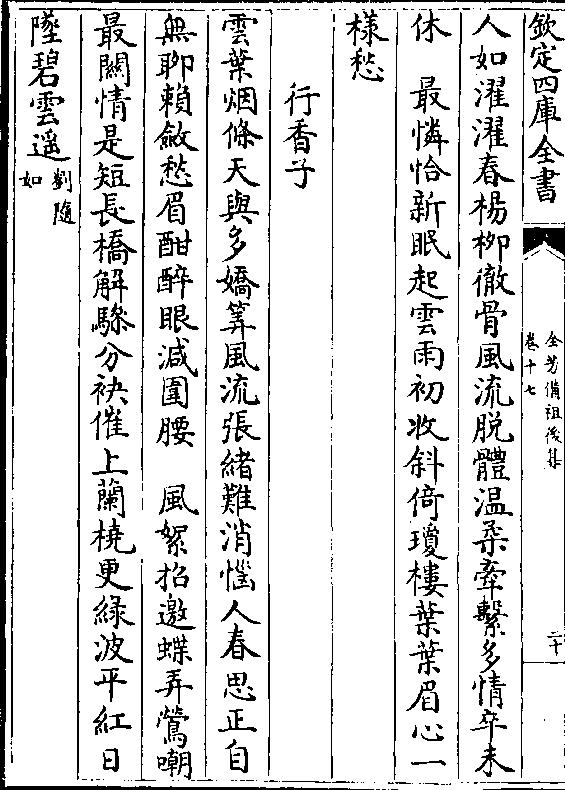 欽定四庫全書
全芳備祖後集
卷十七
二十
人如濯濯春楊柳徹骨風流脫體温柔牽繫多情卒未
休　最憐恰新眠起雲雨初收斜倚瓊樓葉葉眉心一
様愁
行香子
雲葉烟條天與多嬌筭風流張緒難消惱人春思正自
無聊賴斂愁眉酣醉眼減圍腰　風絮招邀蝶弄鶯嘲
最闗情是短長橋解驂分袂催上蘭橈更緑波平紅日
墜碧雲遥
劉隨
如